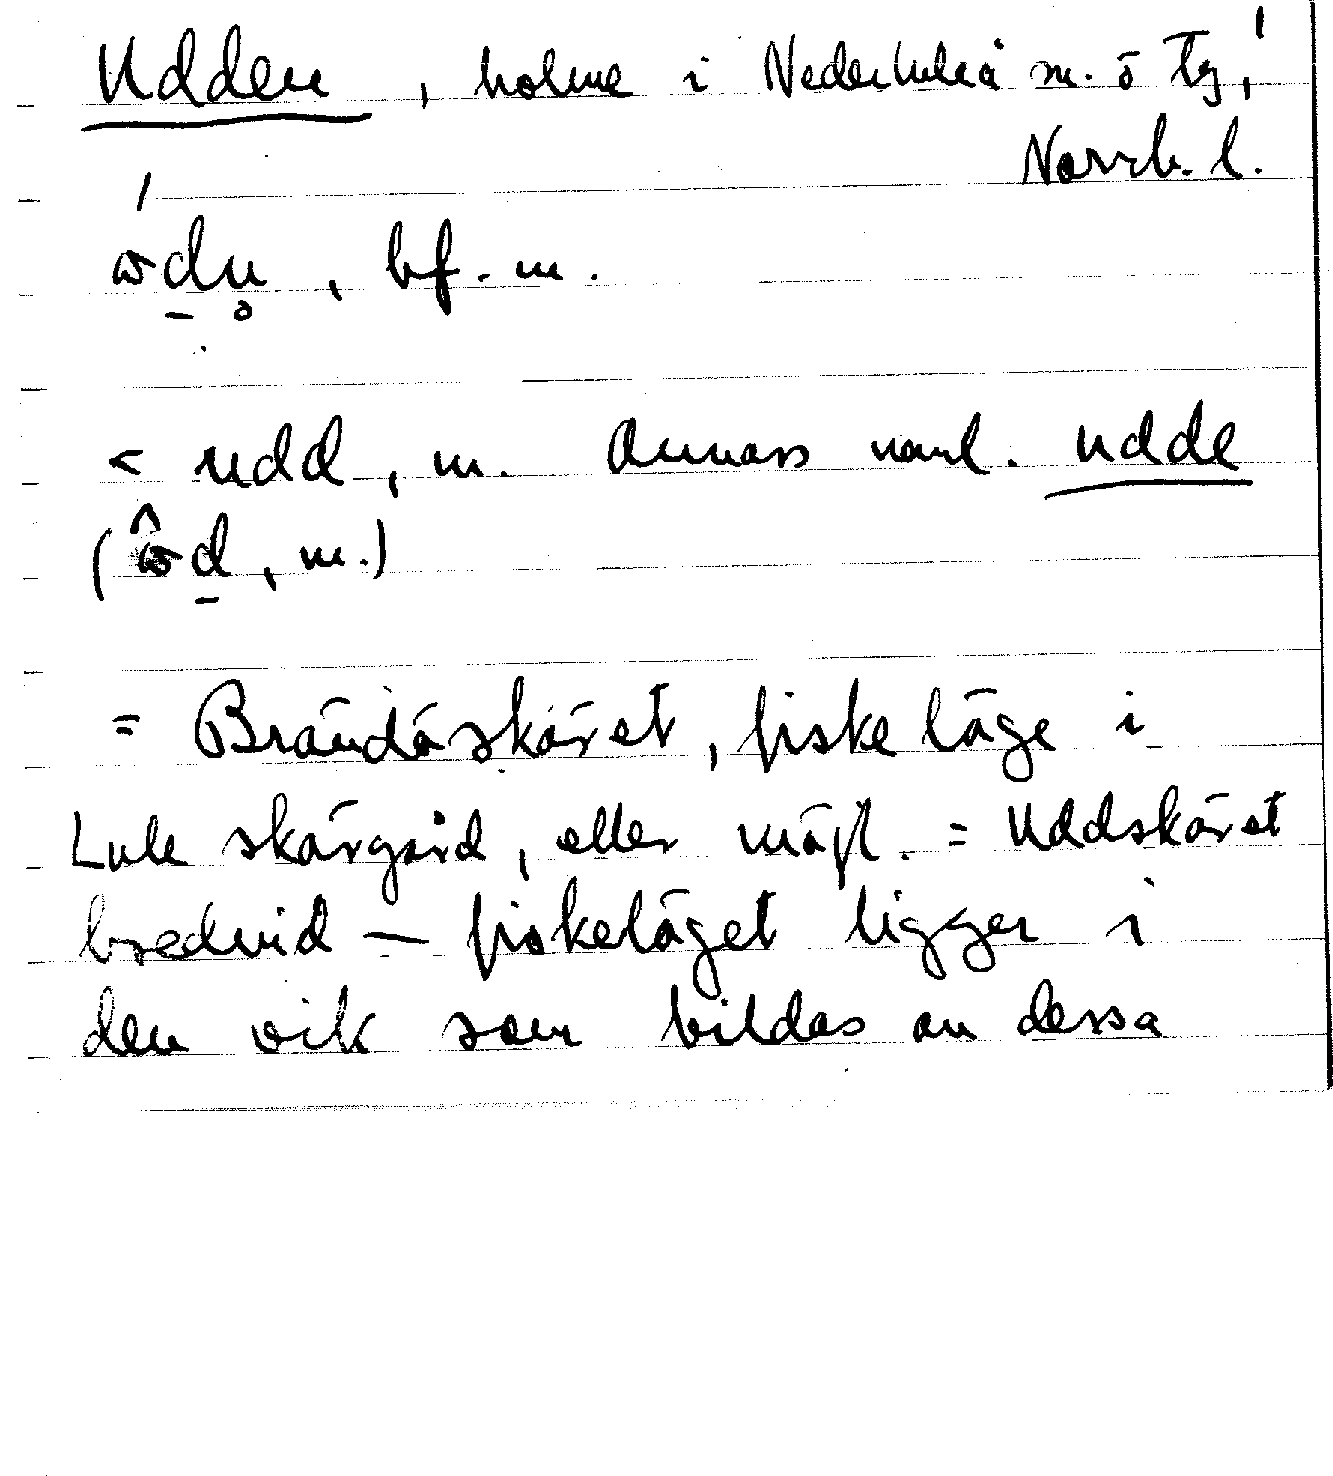 Udden, holme i Nederluleå sn. ö tg,
Norrb. l.
ɷ́d̠n̥, bf. m.
< udd, m. Annars vanl. udde
(ɷ̂d̠, m.)
= Brändöskäret, fiskeläge i
Lule skärgård, eller möjl. = Uddskäret
bredvid — fiskeläget ligger i
den vik som bildas av dessa